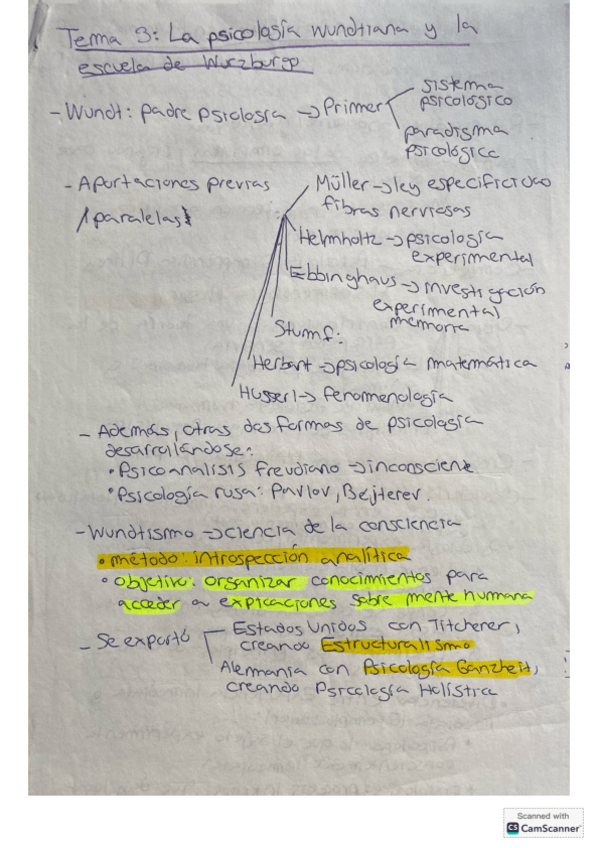 Tema 3: La psicología wundtiana y la
escuela de Wurzburgo
- Wundt: padre psiclosía -> Primer
sistema
psicológico
paradigma
psicológico
- Aportaciones previas
/paralelas
Müller -> ley especificidad
fibras nerviosas
Helmholtz -> psicología
experimental
Ebbinghaus -> investigación
experimental
memoria
Stumf:
Herbart -> psicología matemática
Husserl -> fenomenología
- Además, otras dos formas de psicología
desarrollándose:
• Psicoanalisis freudiano -> inconsciente
• Psicología rusa: Pavlov, Bejterev.
- Wundtismo -> ciencia de la consciencia
• método: introspección analítica
• objetivo: organizar conocimientos para
acceder a expicaciones sobre mente humana
- Se exportó
Estados Unidos con Titchener,
creando Estructuralismo
Alemania con Psicología Ganzheit,
creando Psicología Holística
Scanned with
CS CamScanner